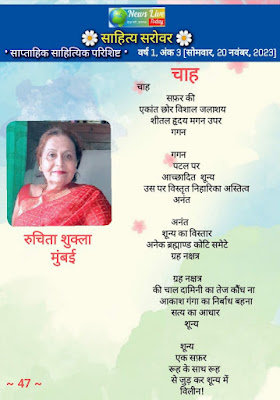 News Live
Today
साहित्य सरोवर
* साप्ताहिक साहित्यिक परिशिष्ट * वर्ष 1, अंक 3 [सोमवार, 20 नवंबर, 2023]
चाह
चाह
सफ़र की
एकांत छोर विशाल जलाशय
शीतल हृदय मगन उपर
गगन
गगन
पटल पर
आच्छादित शून्य
उस पर विस्तृत निहारिका अस्तित्व
अनंत
अनंत
शून्य का विस्तार
अनेक ब्रह्माण्ड कोटि समेटे
ग्रह नक्षत्र
ग्रह नक्षत्र
की चाल दामिनी का तेज कौंध ना
आकाश गंगा का निर्बाध बहना
सत्य का आधार
शून्य
शून्य
एक सफ़र
रूह के साथ रूह
से जुड़ कर शून्य में
विलीन!
रुचिता शुक्ला
मुंबई
~ 47 ~